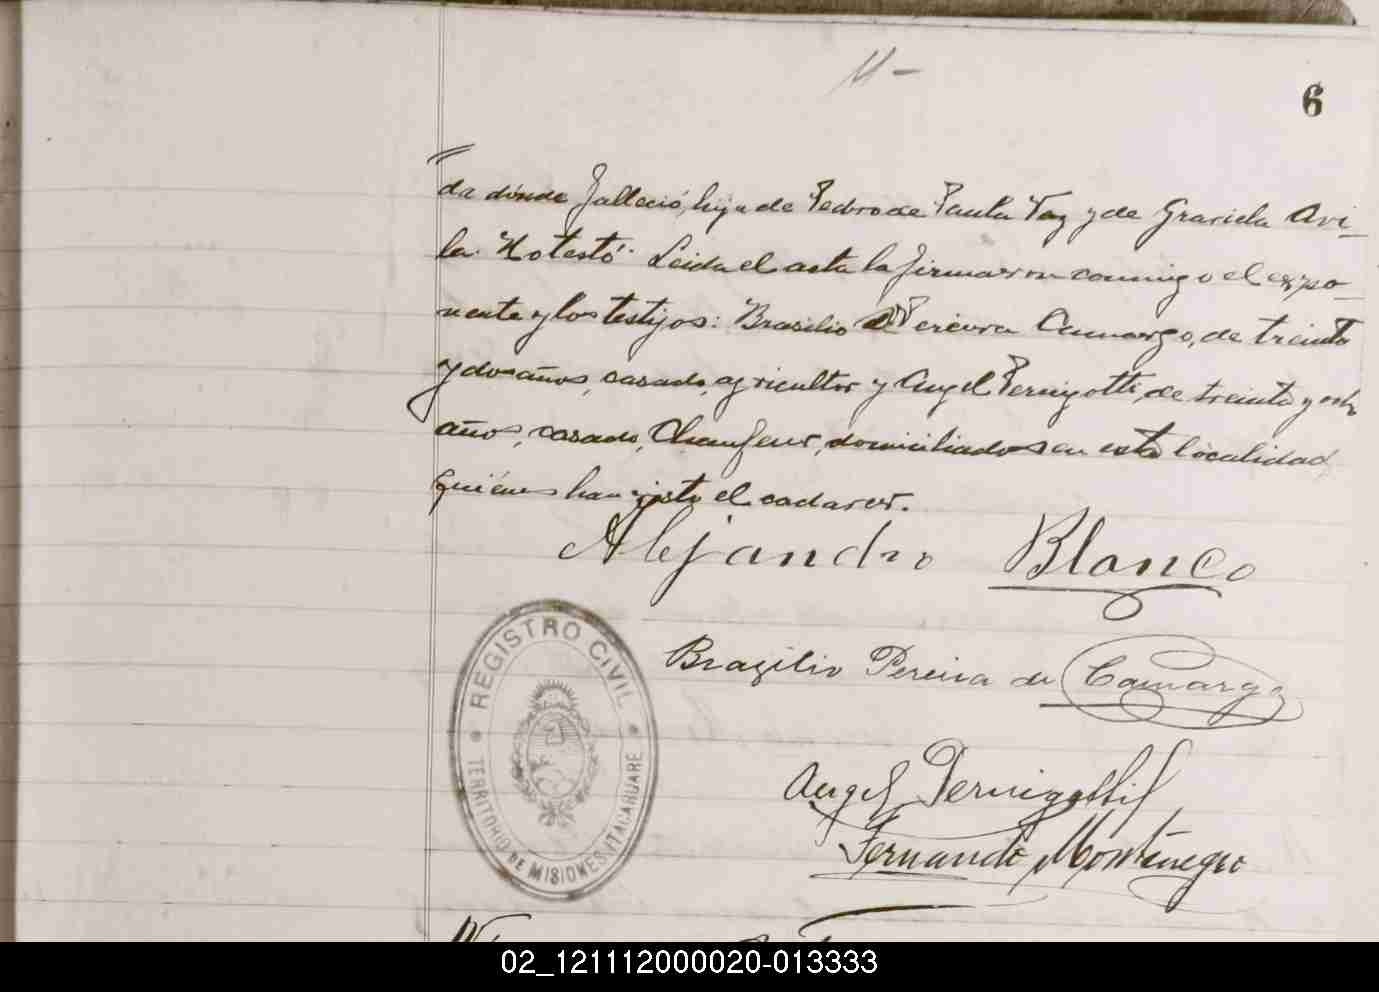 11-
6
da dónde falleció, hija de Pedro de Paula Vaz y de Graciela Avi-
la. No testó. Leida el acta la firmaron conmigo el expo-
nente y los testigos: Brasilio Pereira Camargo, de treinta
y dos años, casado, agricultor y Angel Pernigotti, de treinta y ocho
años, casado, Chaufeur, domiciliados en esta localidad,
quiénes han visto el cadaver.
Alejandro Blanco
Brazilio Pereira de Camargo
Angel Pernigotti
Fernando Montenegro
REGISTRO CIVIL
TERRITORIO DE MISIONES ITACARUARE
02_121112000020-013333